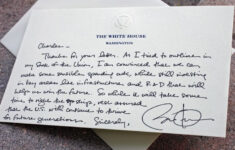 THE WHITE HOUSE
WASHINGTON
Charles —
Thanks for your letter. As I tried to outline in
my State of the Union, I am convinced that we can
make some sensible spending cuts, while still investing
in key areas like infrastructure, and R+D that will
help us win the future. So while it will take some
time to right the ship, rest assured
that the US will continue to
for future generations. Sincerely,